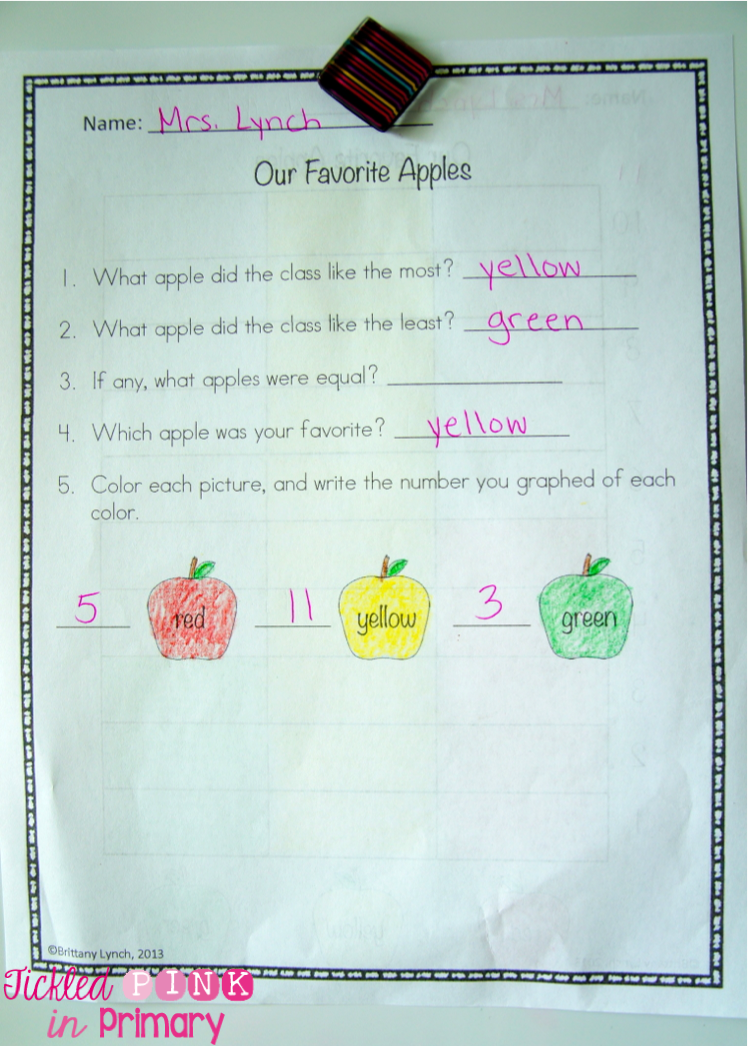 Name: Mrs. Lynch
Our Favorite Apples
1. What apple did the class like the most? yellow
2. What apple did the class like the least? green
3. If any, what apples were equal?
4. Which apple was your favorite? yellow
5. Color each picture, and write the number you graphed of each
color.
5 red 11 yellow 3 green
©Brittany Lynch, 2013
Tickled PINK
in Primary